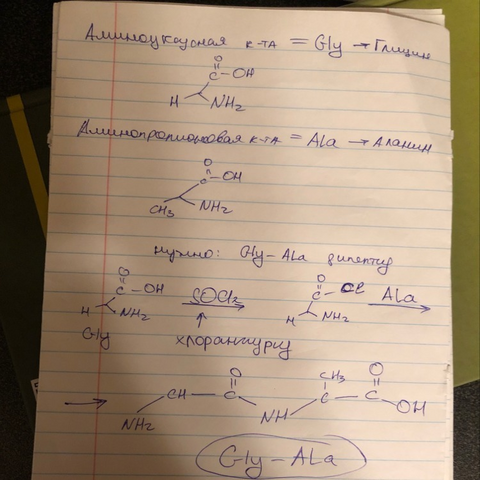 Аминоуксусная к-та = Gly → Глицин
O
C – OH
H NH2
Аминопропионовая к-та = Ala → Аланин
O
C – OH
CH3 NH2
нужно: Gly – Ala дипептид
O O
C – OH SOCl2 C – Cl Ala
H NH2 H NH2
Gly хлорангидрид
O CH3 O
CH – C C – C
NH2 NH OH
Gly – Ala